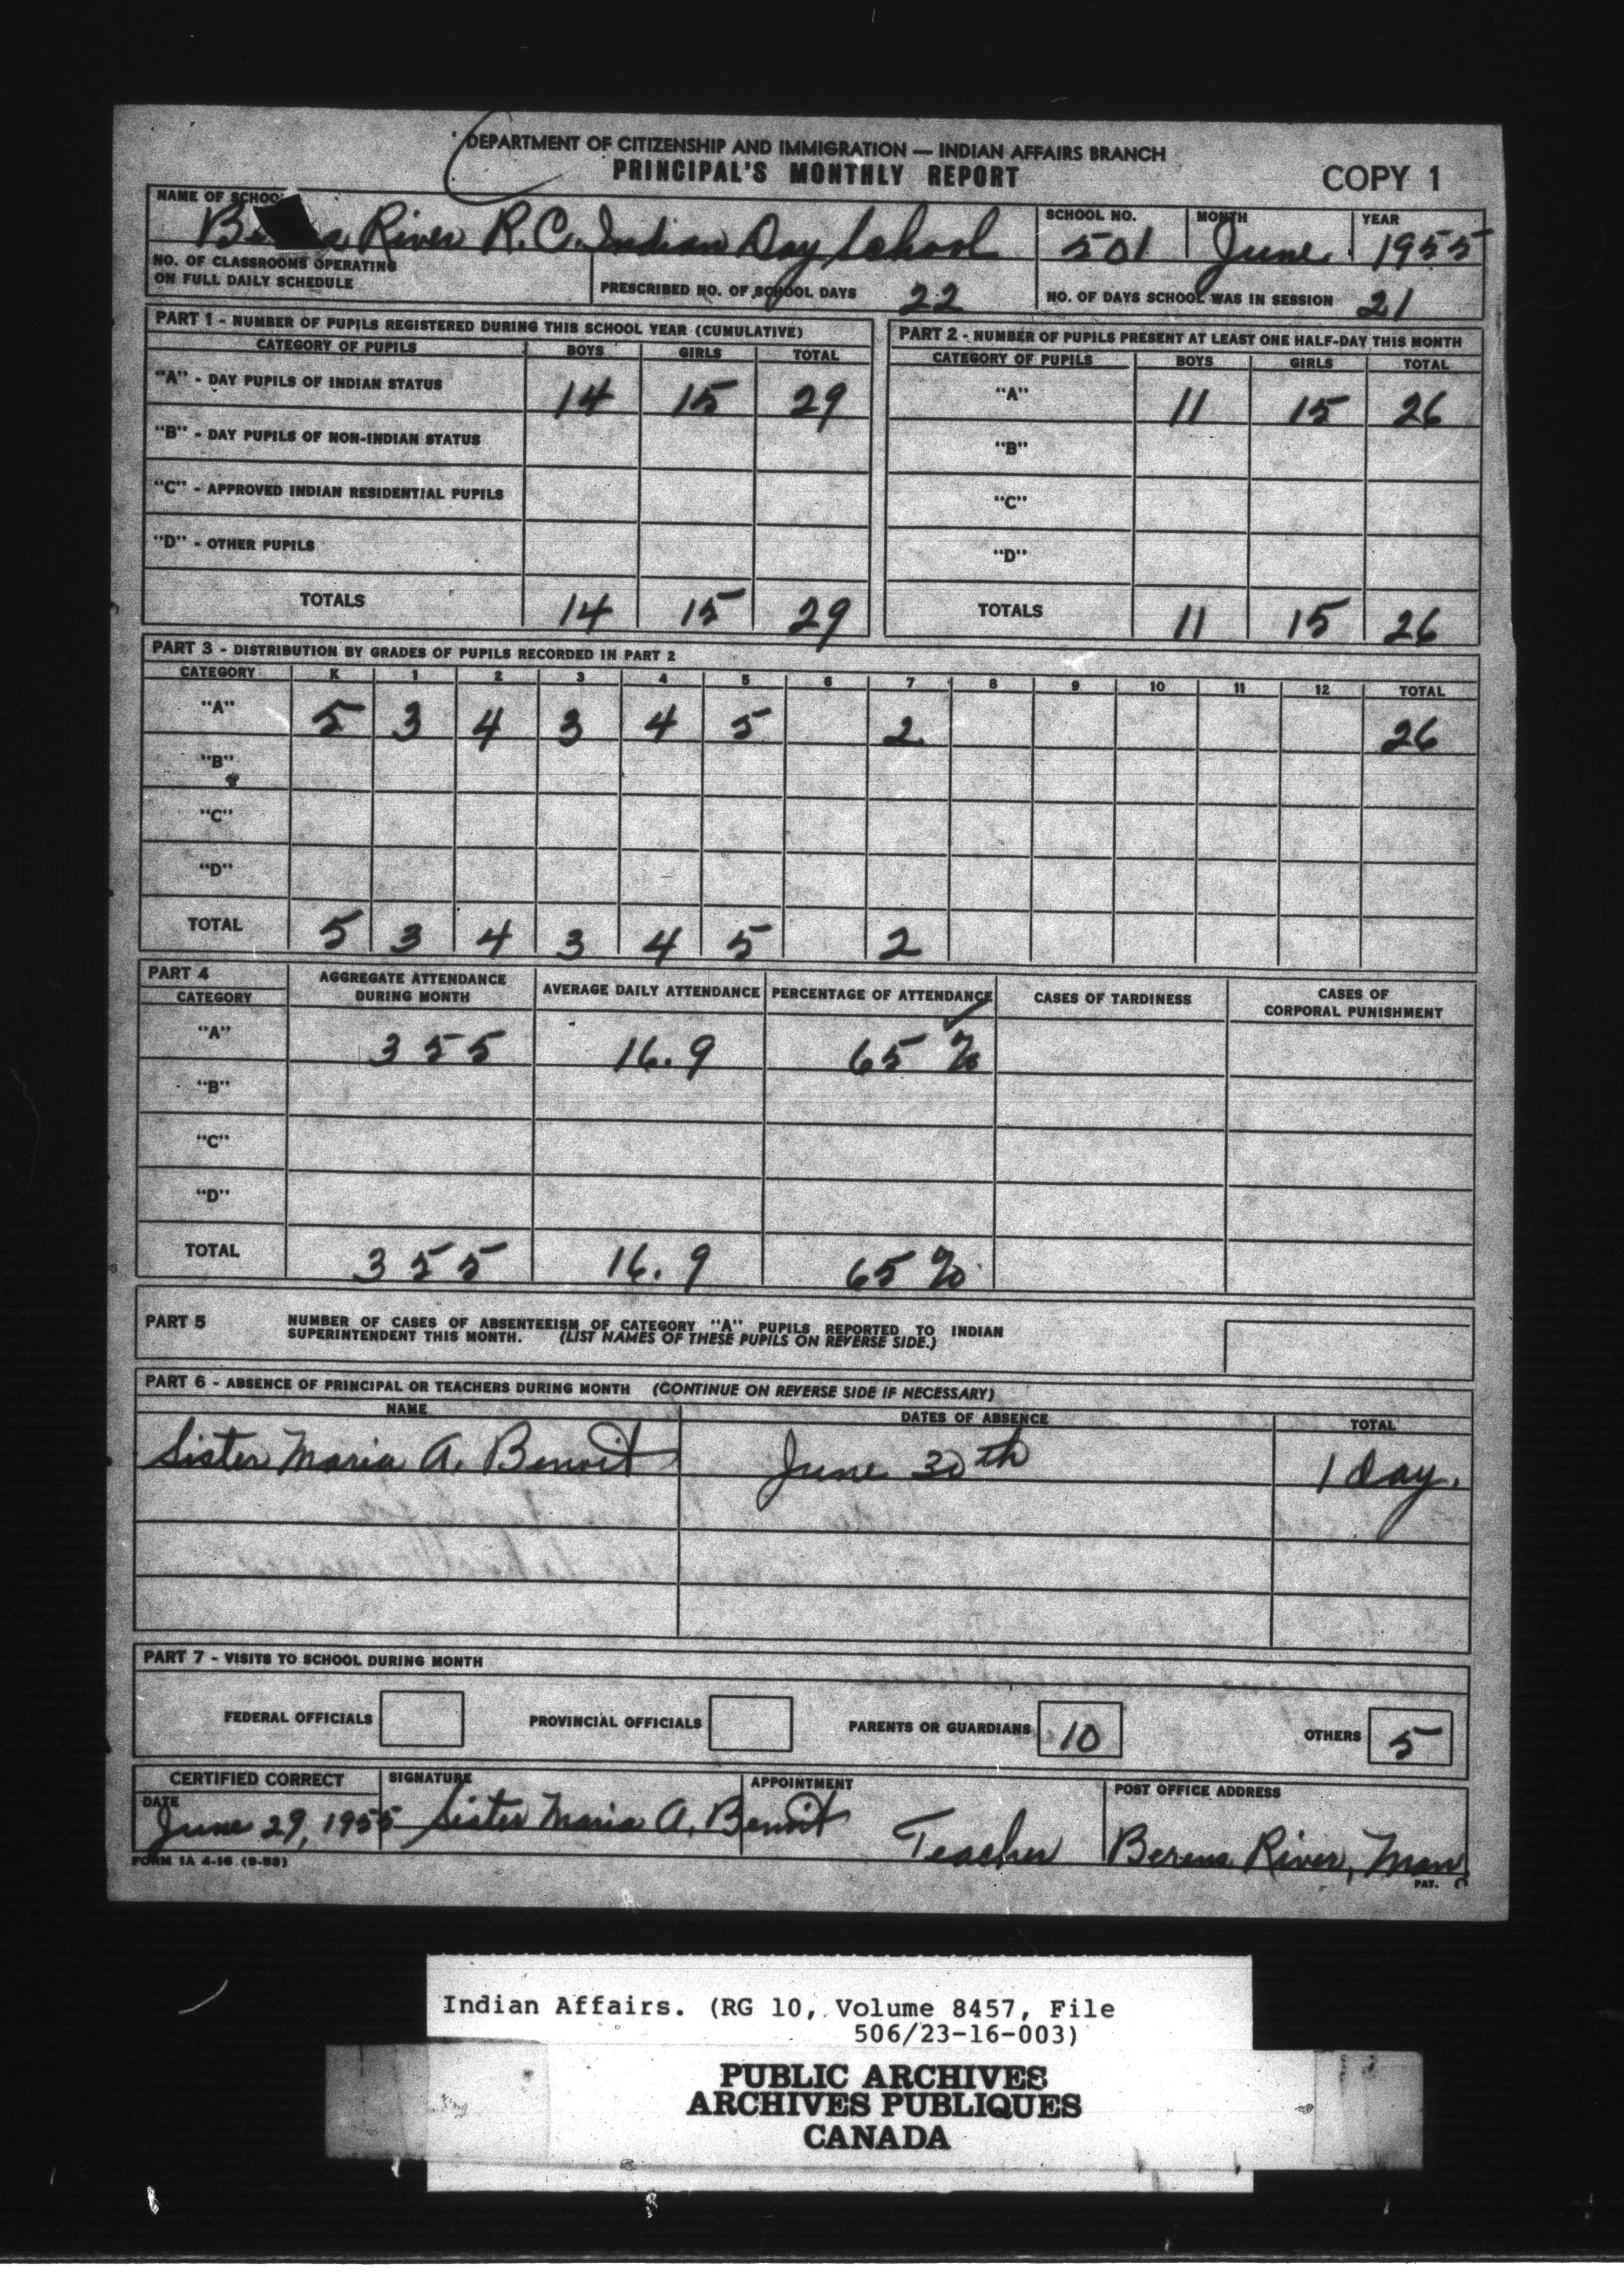 DEPARTMENT OF CITIZENSHIP AND IMMIGRATION — INDIAN AFFAIRS BRANCH
PRINCIPAL'S MONTHLY REPORT
COPY 1
NAME OF SCHOOL SCHOOL NO. MONTH YEAR
River R.C. Indian Day School 501 June 1955
NO. OF CLASSROOMS OPERATING
ON FULL DAILY SCHEDULE
PRESCRIBED NO. OF SCHOOL DAYS 22
NO. OF DAYS SCHOOL WAS IN SESSION 21
PART 1 - NUMBER OF PUPILS REGISTERED DURING THIS SCHOOL YEAR (CUMULATIVE)
CATEGORY OF PUPILS BOYS GIRLS TOTAL
"A" - DAY PUPILS OF INDIAN STATUS 14 15 29
"B" - DAY PUPILS OF NON-INDIAN STATUS
"C" - APPROVED INDIAN RESIDENTIAL PUPILS
"D" - OTHER PUPILS
TOTALS 14 15 29
PART 2 - NUMBER OF PUPILS PRESENT AT LEAST ONE HALF-DAY THIS MONTH
CATEGORY OF PUPILS BOYS GIRLS TOTAL
"A" 11 15 26
"B"
"C"
"D"
TOTALS 11 15 26
PART 3 - DISTRIBUTION BY GRADES OF PUPILS RECORDED IN PART 2
CATEGORY K 1 2 3 4 5 6 7 8 9 10 11 12 TOTAL
"A" 5 3 4 3 4 5 2 26
"B"
"C"
"D"
TOTAL 5 3 4 3 4 5 2
PART 4
CATEGORY
AGGREGATE ATTENDANCE
DURING MONTH
AVERAGE DAILY ATTENDANCE
PERCENTAGE OF ATTENDANCE
CASES OF TARDINESS
CASES OF
CORPORAL PUNISHMENT
"A" 355 16.9 65 %
"B"
"C"
"D"
TOTAL 355 16.9 65 %
PART 5 NUMBER OF CASES OF ABSENTEEISM OF CATEGORY "A" PUPILS REPORTED TO INDIAN
SUPERINTENDENT THIS MONTH. (LIST NAMES OF THESE PUPILS ON REVERSE SIDE.)
PART 6 - ABSENCE OF PRINCIPAL OR TEACHERS DURING MONTH (CONTINUE ON REVERSE SIDE IF NECESSARY)
NAME DATES OF ABSENCE TOTAL
Sister Maria A. Benoit June 30th 1 day.
PART 7 - VISITS TO SCHOOL DURING MONTH
FEDERAL OFFICIALS PROVINCIAL OFFICIALS PARENTS OR GUARDIANS 10 OTHERS 5
CERTIFIED CORRECT SIGNATURE APPOINTMENT POST OFFICE ADDRESS
DATE
June 29, 1955 Sister Maria A. Benoit Teacher Berens River, Man.
FORM 1A 4-16 (9-53)
PAT.
Indian Affairs. (RG 10, Volume 8457, File
506/23-16-003)
PUBLIC ARCHIVES
ARCHIVES PUBLIQUES
CANADA